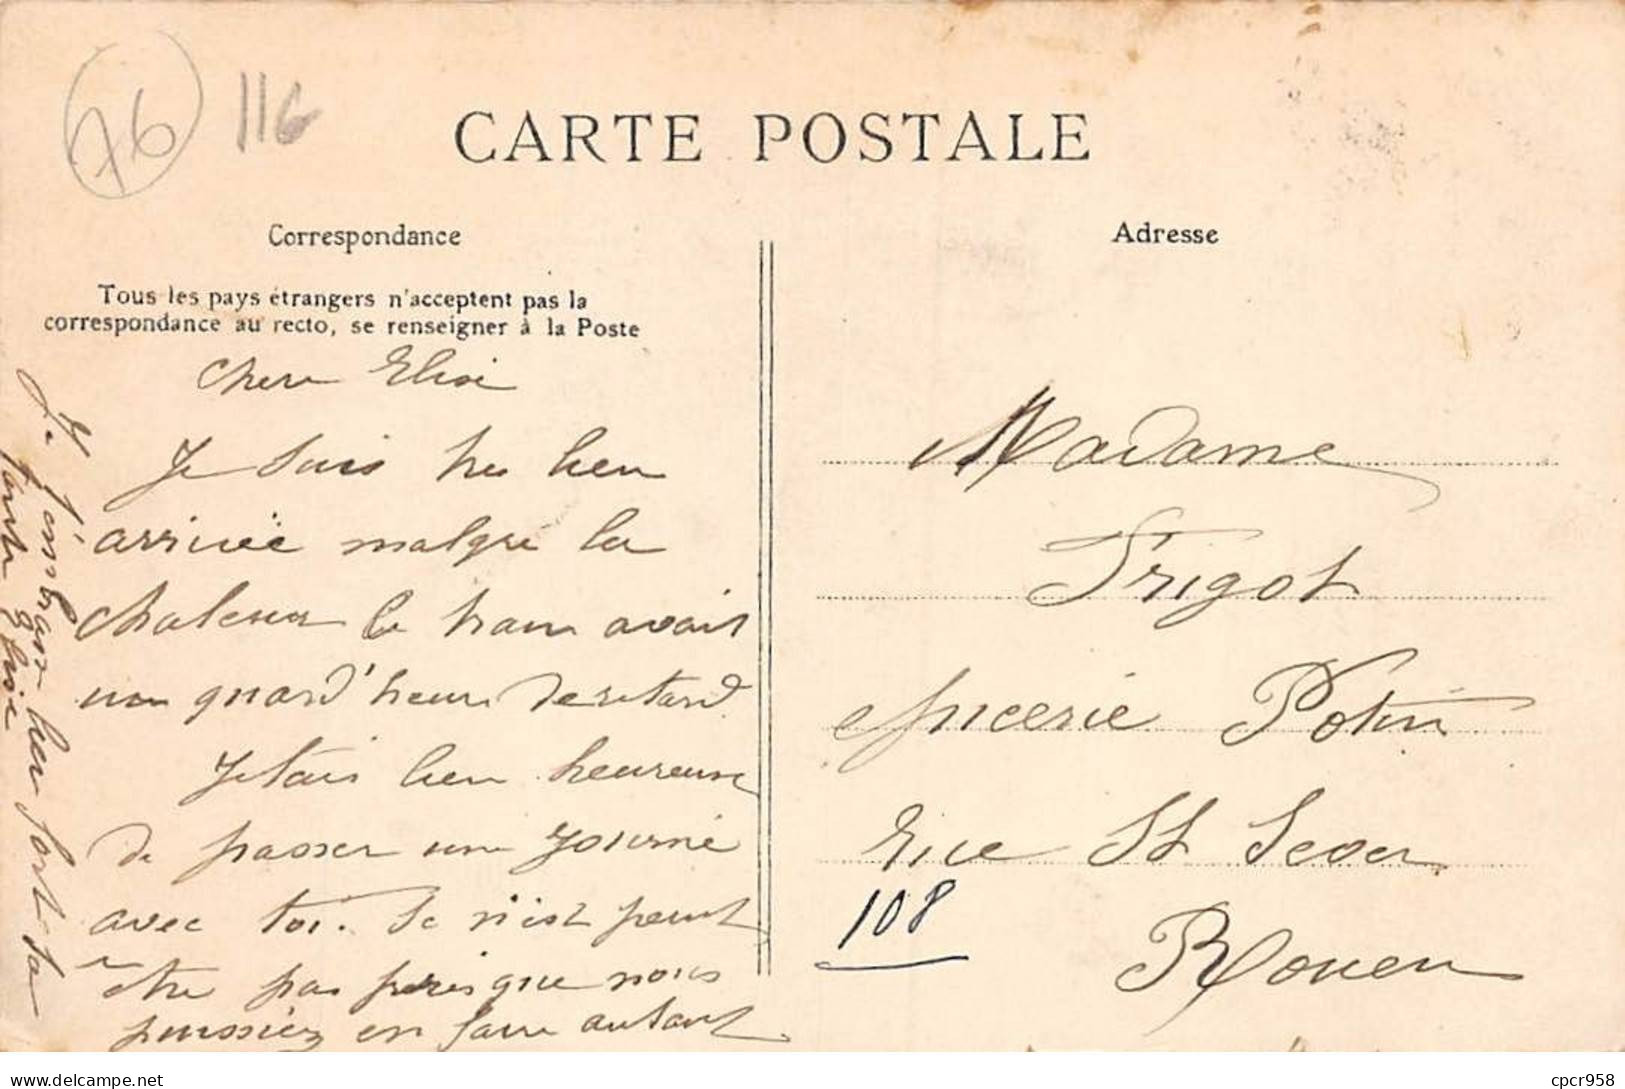 76
116
CARTE POSTALE
Correspondance
Adresse
Tous les pays étrangers n'acceptent pas la
correspondance au recto, se renseigner à la Poste
Chere Elise
Je suis tres bien
arrivée malgre la
chaleur le train avait
un quard'heure de retard
Jetais bien heureuse
de passer une journé
avec toi. Ce n'est peut
etre pas pres que nous
pussiez en faire autant
Je t'embrasse bien fort ta
tante
Madame
Trigot
Epicerie Potin
Rue St Sever
108
Rouen
cpcr958